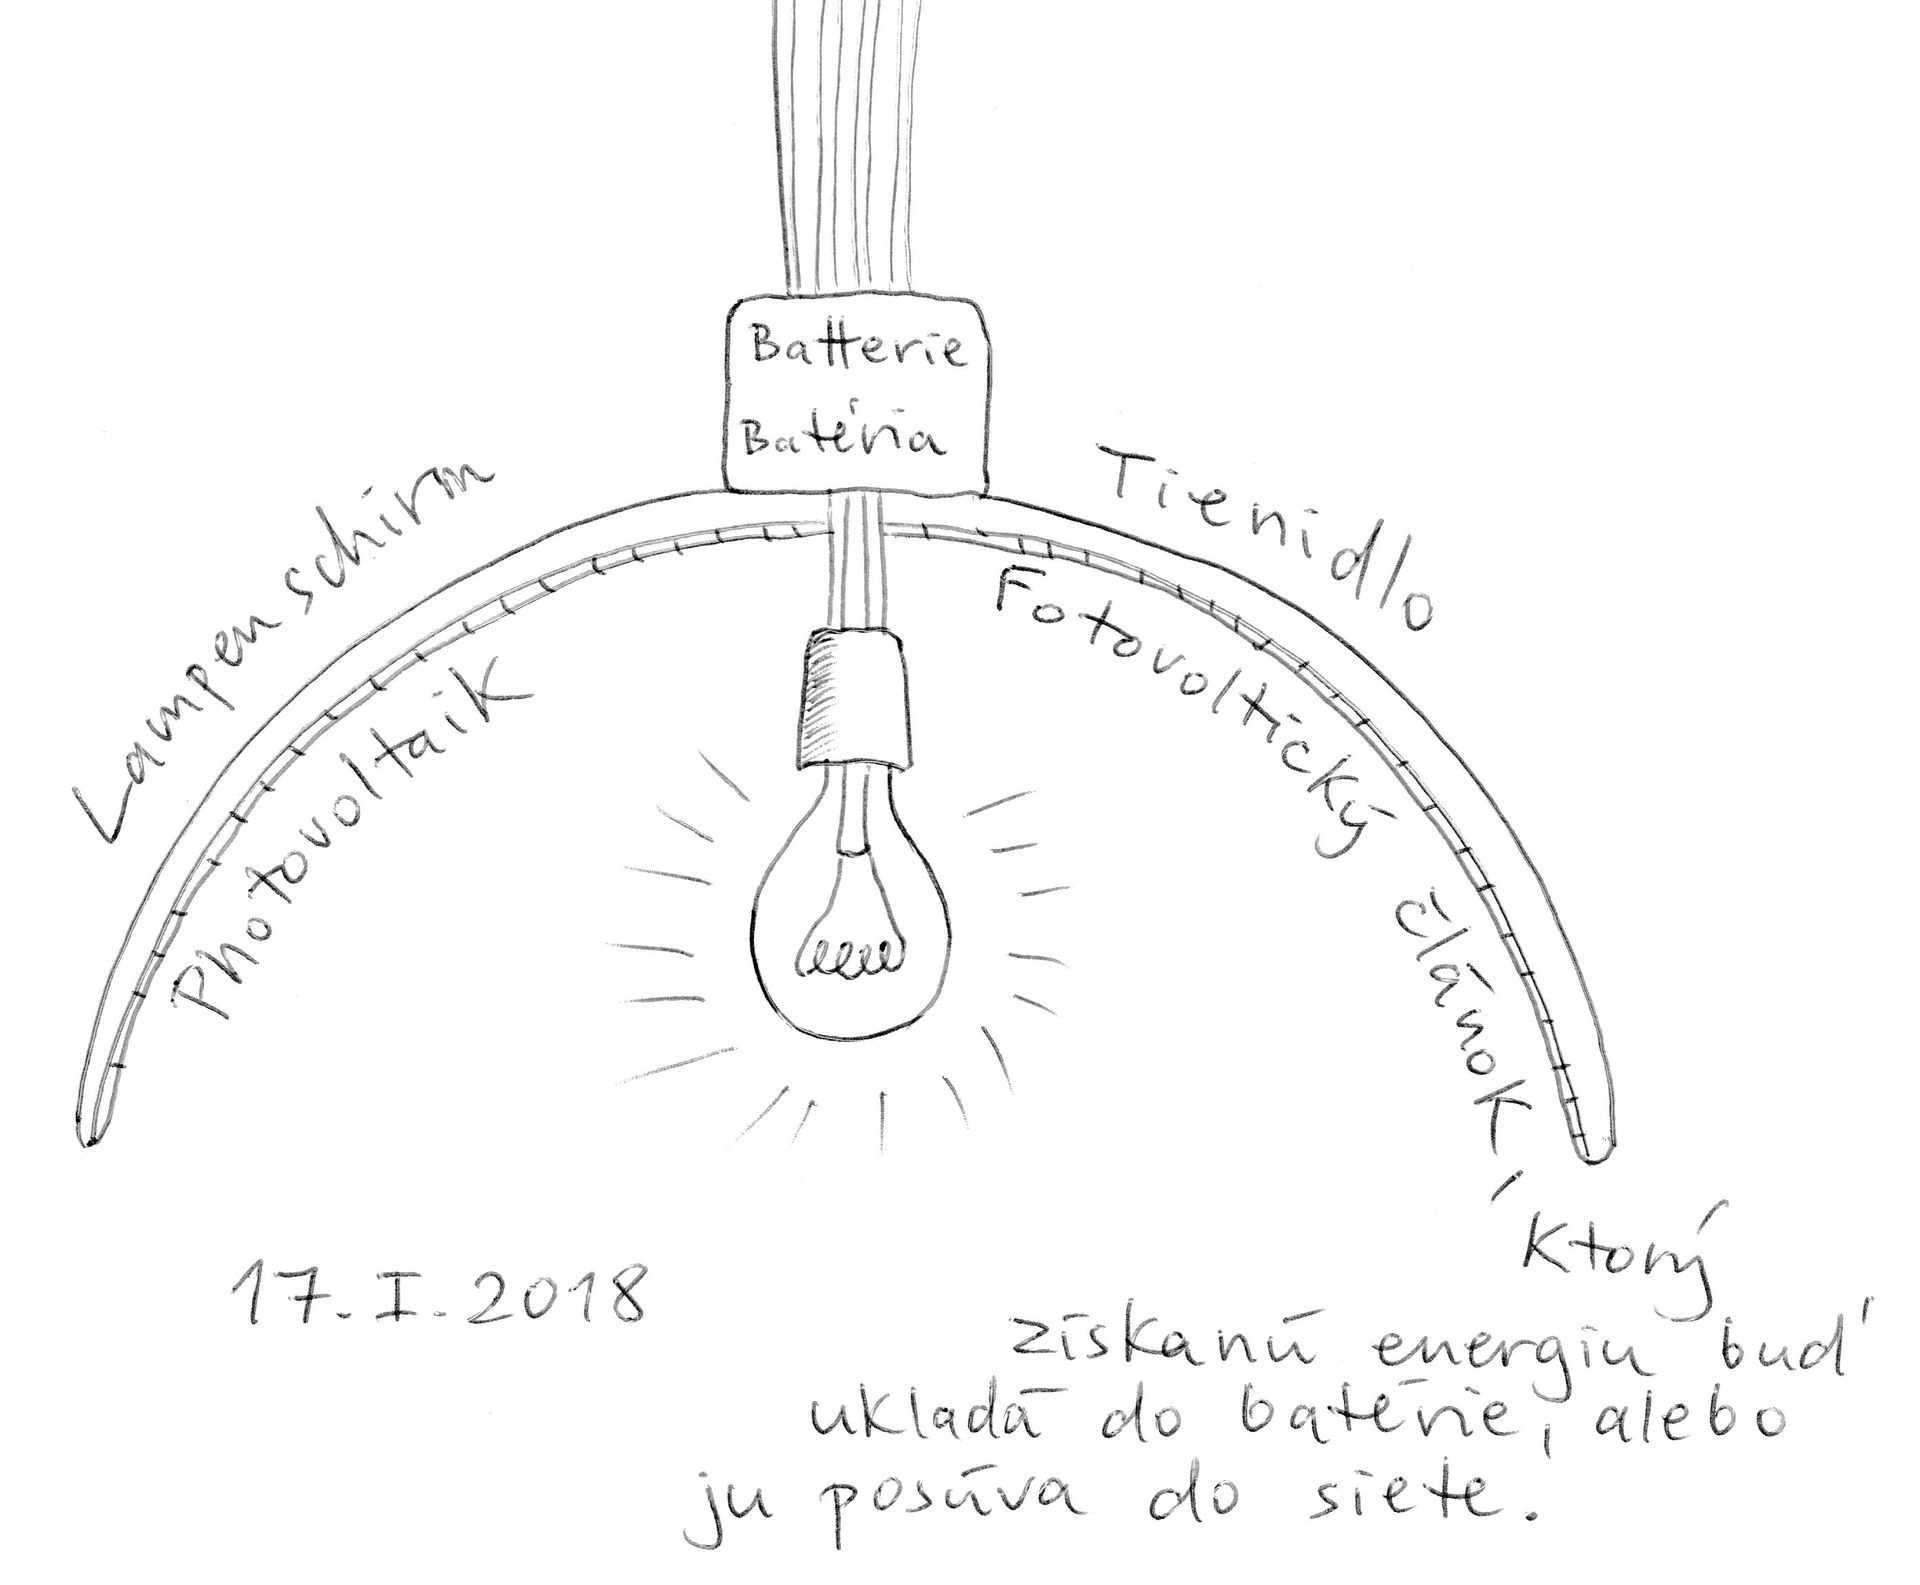 Batterie
Batéria
Lampenschirm
Tienidlo
Photovoltaik
Fotovoltický článok,
ktorý
získanú energiu buď
ukladá do batérie, alebo
ju posúva do siete.
17. I. 2018